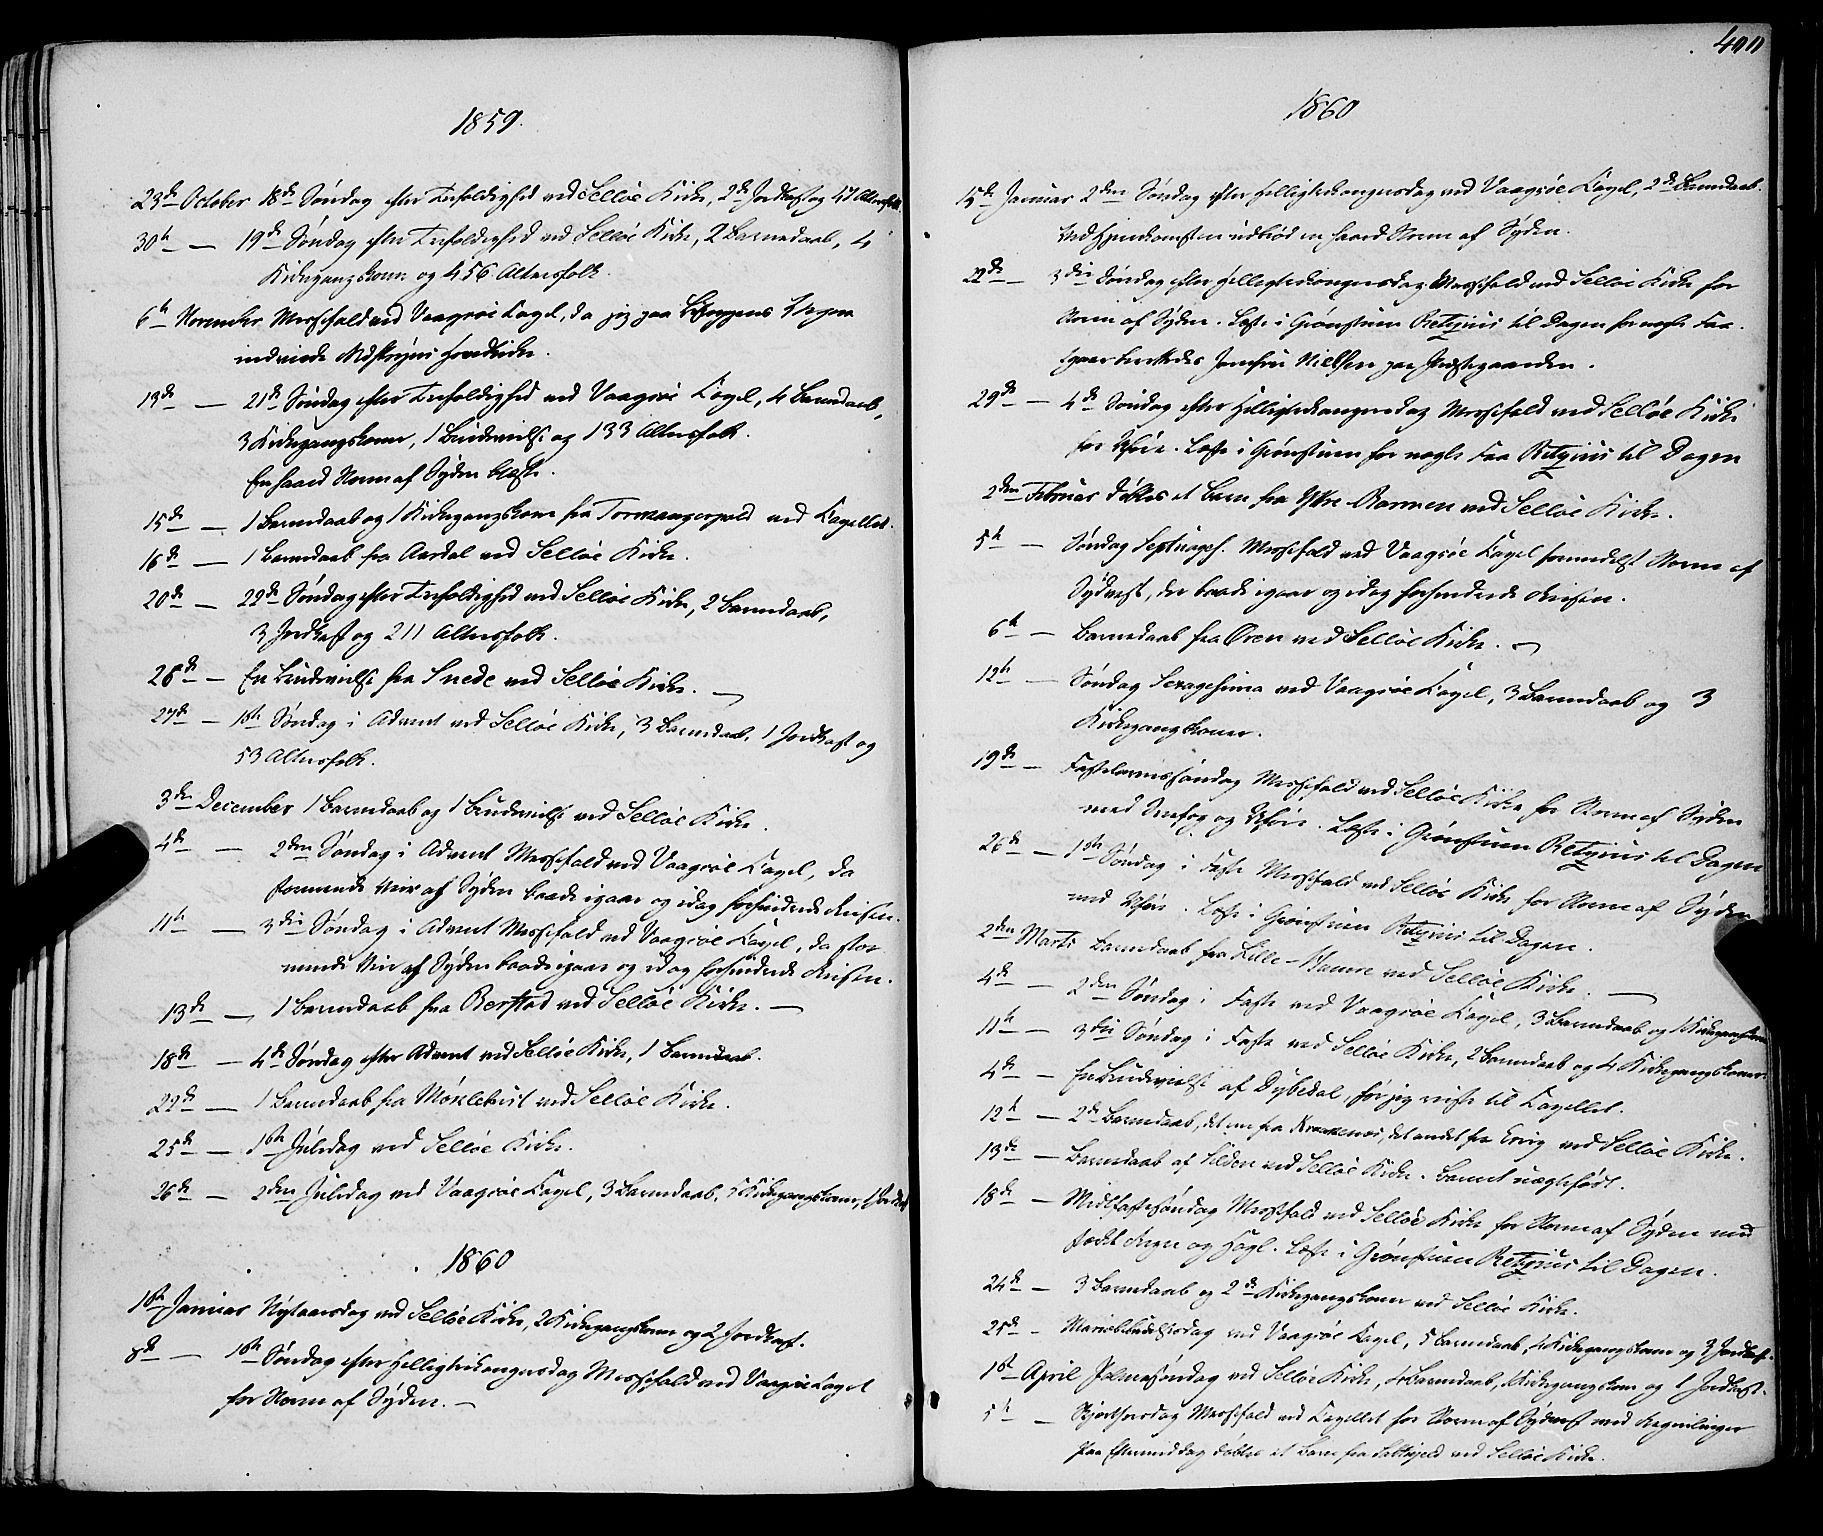 1859.
23de October 18de Søndag efter Trefoldighed ved Selløe Kirke, 2de Jordkast og 47 Altersfolk.
30te — 19de Søndag efter Trefoldighed ved Selløe Kirke, 2 Barnedaab, 4
Kirkegangskoner og 456 Altersfolk.
6te November Messefald ved Vaagsøe Capel, da jeg paa Bispens Vegne
indviede Kirke.
13de — 21de Søndag efter Trefoldighed ved Vaagsøe Capel, 4 Barnedaab,
3 Kirkegangskoner, 1 Brudevielse og 133 Altersfolk.
En haard Storm af Syden blæste.
15de — 1 Barnedaab og 1 Kirkegangskone fra Tormangerpold ved Capellet.
16de — 1 Barnedaab fra Aardal ved Selløe Kirke.
20de — 22de Søndag efter Trefoldighed ved Selløe Kirke, 2 Barnedaab,
3 Jordkast og 211 Altersfolk.
26de — En Brudevielse fra Snede ved Selløe Kirke. —
27de — 1ste Søndag i Advent ved Selløe Kirke, 3 Barnedaab, 1 Jordkast og
53 Altersfolk.
3die December 1 Barnedaab og 1 Brudevielse ved Selløe Kirke.
4de — 2den Søndag i Advent Messefald ved Vaagsøe Capel, da
stormende Veir af Syden baade igaar og idag forhindrede Reisen.
11te — 3die Søndag i Advent Messefald ved Vaagsøe Capel, da stor-
mende Veir af Syden baade igaar og idag forhindrede Reisen.
13de — 1 Barnedaab fra Berstad ved Selløe Kirke. —
18de — 4de Søndag efter Advent ved Selløe Kirke, 1 Barnedaab.
22de — 1 Barnedaab fra Møklebust ved Selløe Kirke.
25de — 1ste Juledag ved Selløe Kirke.
26de — 2den Juledag ved Vaagsøe Capel, 3 Barnedaab, 5 Kirkegangskoner, 1 Jordkast
1860
1ste Januar Nytaarsdag ved Selløe Kirke, 2 Kirkegangskoner og 2 Jordkast.
8de — 1ste Søndag efter Helligtrekongersdag Messefald ved Vaagsøe Capel
for Storm af Syden. —
400
1860
15de Januar 2den Søndag efter Helligtrekongersdag ved Vaagsøe Capel, 2de Barnedaab.
Ved Hjemkomsten udbrød en haard Storm af Syden.
22de — 3die Søndag efter Helligtrekongersdag Messefald ved Selløe Kirke for
Storm af Syden. Læste i Grønstuen Retzius til Dagen for nogle Faa.
Igaar Jomfru Nielsen paa Præstegaarden.
29de — 4de Søndag efter Helligtrekongersdag Messefald ved Selløe Kirke
for Uføre. Læste i Grønstuen for nogle Faa Retzius til Dagen
2den Februar døbtes et Barn fra Ytre-Barmen ved Selløe Kirke.
5te — Søndag Septuages. Messefald ved Vaagsøe Capel formedelst Storm af
Sydvest, der baade igaar og idag forhindrede Reisen.
6te — Barnedaab fra Øren ved Selløe Kirke. —
12te — Søndag Sexagesima ved Vaagsøe Capel, 3 Barnedaab og 3
Kirkegangskoner.
19de — Fastelavnssøndag Messefald ved Selløe Kirke for Storm af Syden
med Snefog og Uføre. Læste i Grønstuen Retzius til Dagen
26de — 1ste Søndag i Faste Messefald ved Selløe Kirke for Storm af Syden
med Uføre. Læste i Grønstuen Retzius til Dagen.
2den Marts Barnedaab fra Lille- ved Selløe Kirke. —
4de — 2den Søndag i Faste ved Vaagsøe Capel, 3 Barnedaab og 1 Kirkegangskone
11te — 3die Søndag i Faste ved Selløe Kirke, 2 Barnedaab og 4 Kirkegangskoner.
4de — En Brudevielse af Dybedal, før jeg reiste til Capellet.
12te — 2de Barnedaab, det ene fra Krakenes, det andet fra ved Selløe Kirke.
13de — Barnedaab af Silden ved Selløe Kirke. Barnet uægtefødt.
18de — Midfastesøndag Messefald ved Selløe Kirke for Storm af Syden med
Regn og Hagl. Læste i Grønstuen Retzius til Dagen.
24de — 3 Barnedaab og 2de Kirkegangskoner ved Selløe Kirke.
25de — Mariæbebudelsesdag ved Vaagsøe Capel, 5 Barnedaab, 4 Kirkegangskoner og 3 Jordkast.
1ste April Palmesøndag ved Selløe Kirke, 4 Barnedaab, 1 Kirkegangskone og 1 Jordkast.
5te — Skjærthorsdag Messefald ved Capellet for Storm af Sydvest med Regnilinger
Paa Eftermiddag døbtes et Barn fra ved Selløe Kirke.